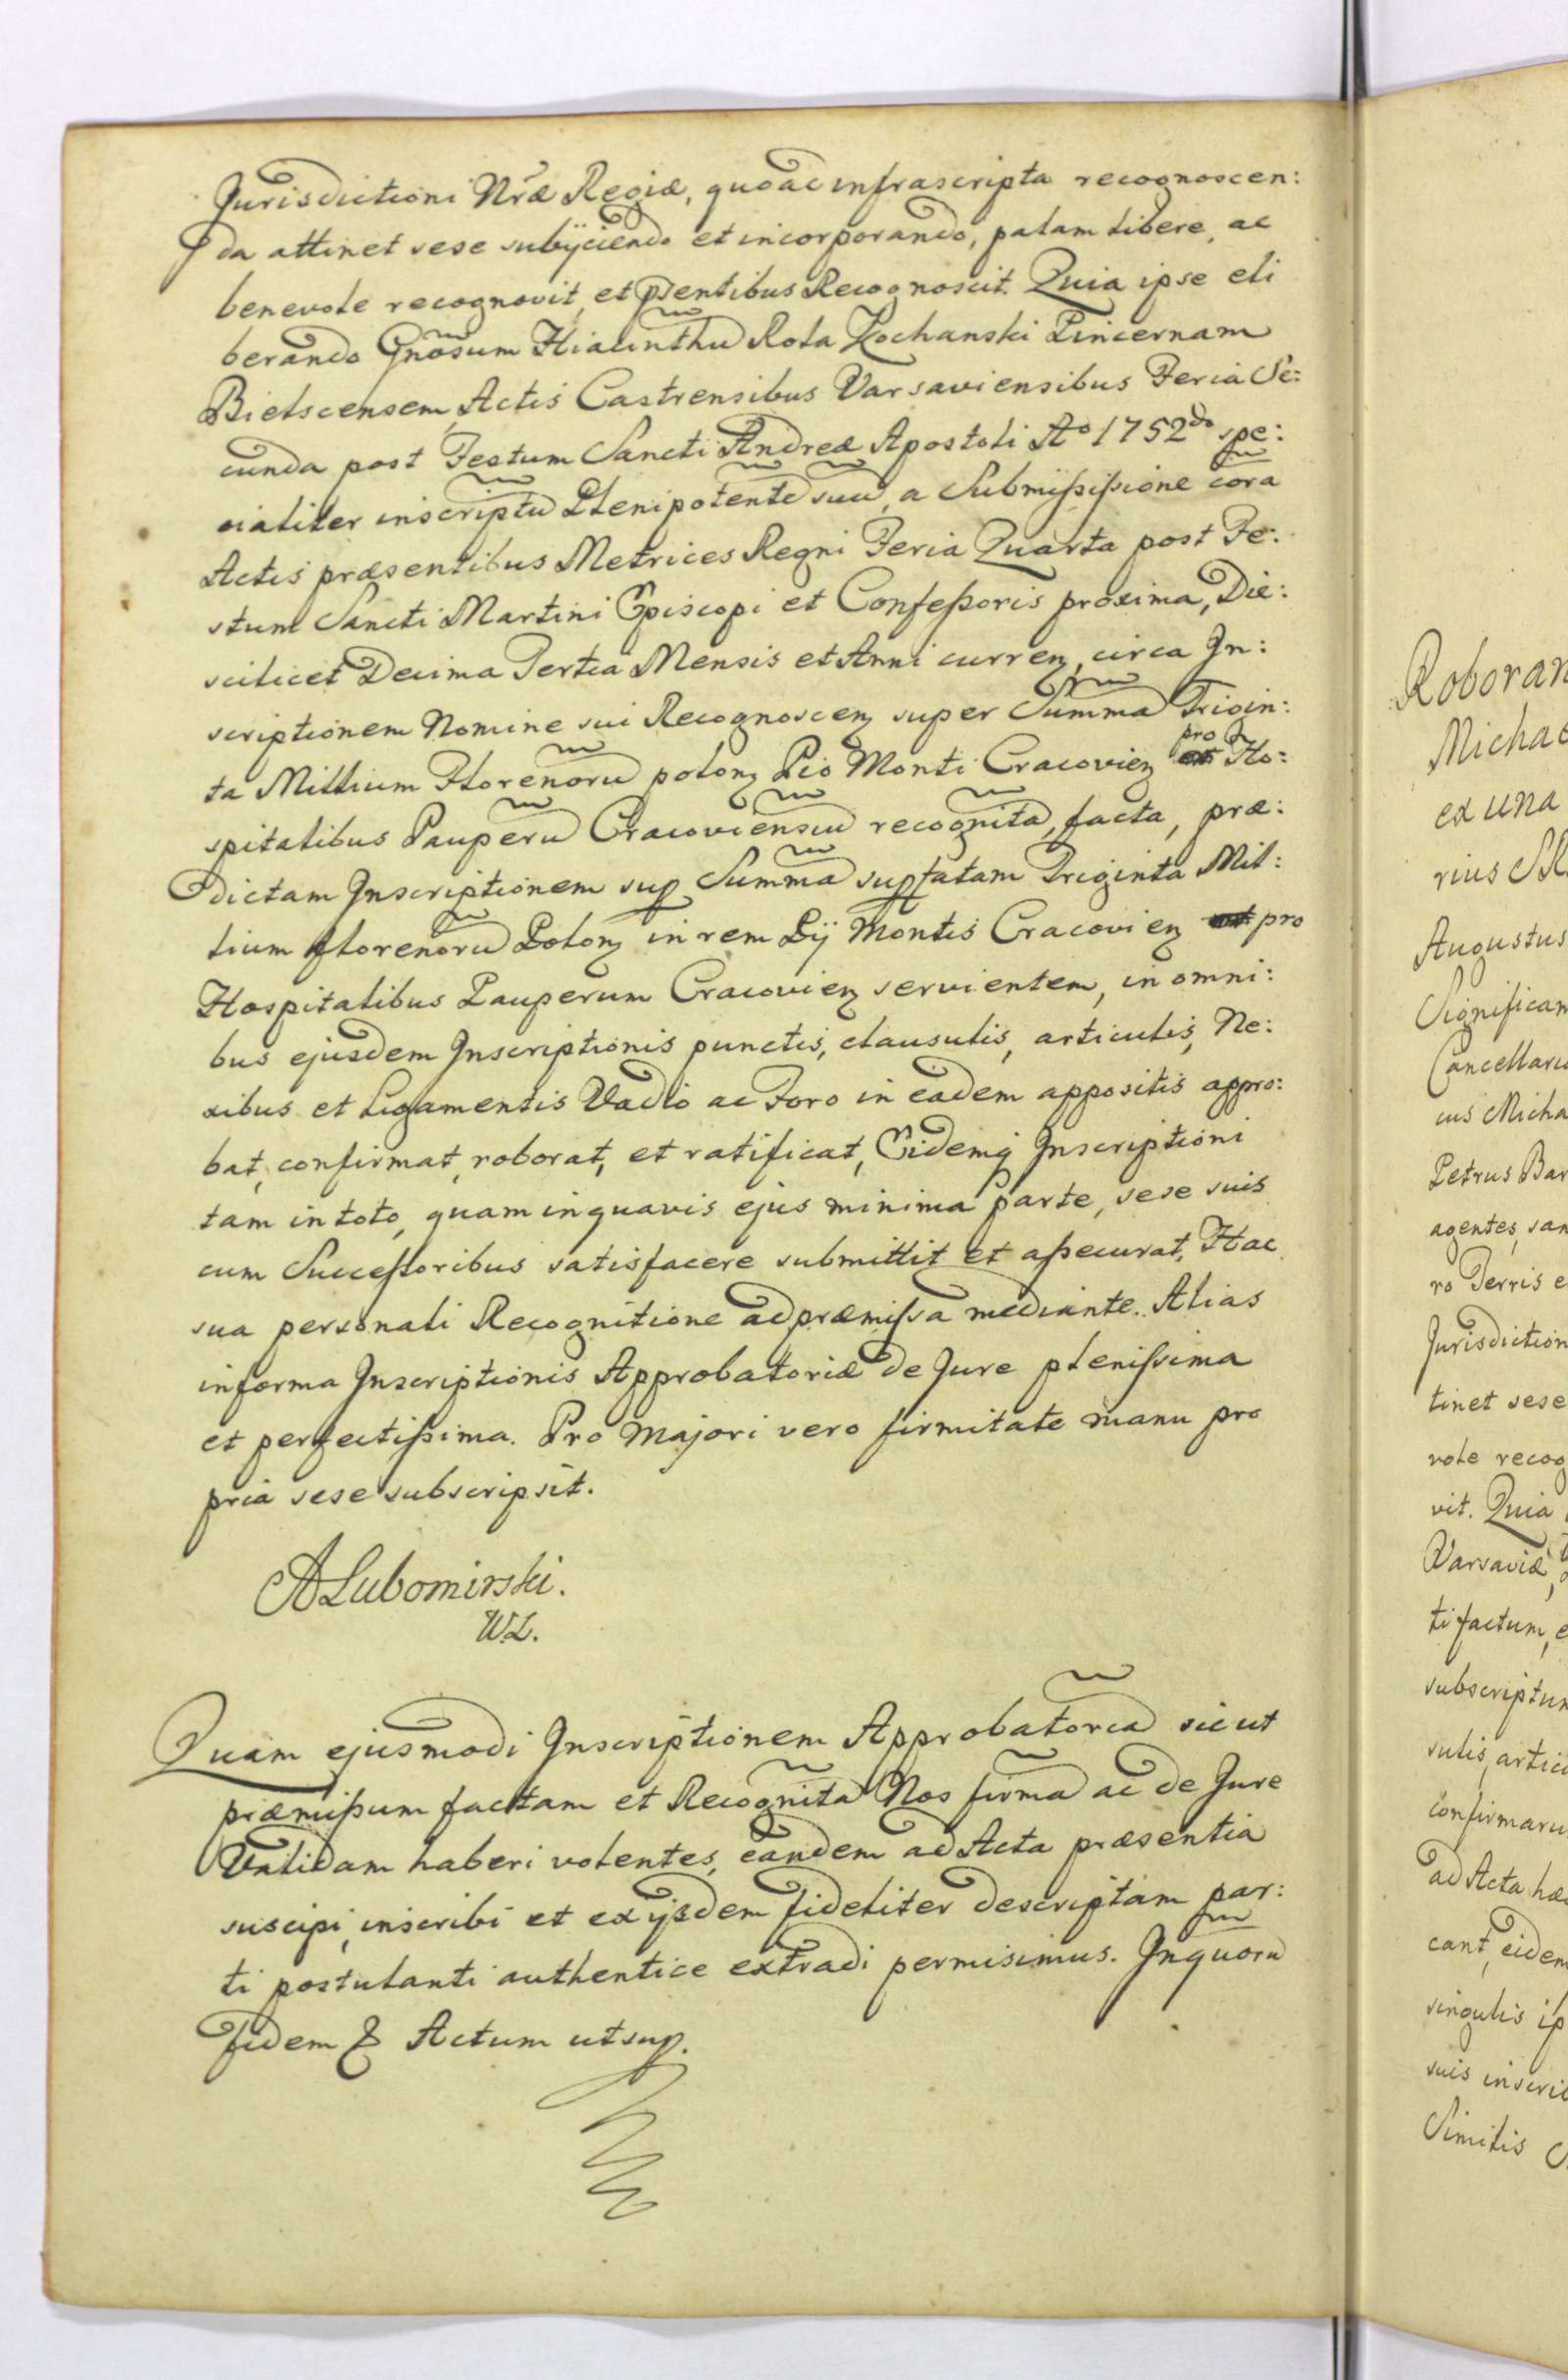 Jurisdictioni Nr̃æ Regiæ, quoad infrascripta recognoscen:
da attinet sese subijciendo et incorporando, palam libere, ac
benevole recognovit, et pñtibus Recognoscit. Quia ipse eli
berando Gnõsum Hiacinthũ Rola Zochanski Pincernam
Bielscensem, Actis Castrensibus Varsaviensibus Feria Se:
cunda post Festum Sancti Andreæ Apostoli Aº 1752do spe:
cialiter inscriptũ Plenipotentẽ suũ, a Submississione corã
Actis præsentibus Metrices Regni Feria Quarta post Fe:
stum Sancti Martini Episcopi et Confessoris proxima, Die:
scilicet Decima Tertia Mensis et Anni curren, circa In:
scriptionem Nomine sui Recognoscen super Summã Trigin:
ta Millium Florenorũ polon Pio Monti Cracovien pro Ho:
spitalibus Pauperũ Cracoviensiũ recognitã, facta, præ:
dictam Inscriptionem sup Summã supfatam Triginta Mil:
lium florenorũ Polon in rem Pij Montis Cracovien pro
Hospitalibus Pauperum Cracovien servientem, in omni:
bus ejusdem Inscriptionis punctis, clausulis, articulis, Ne:
xibus et Ligamentis Vadio ac Foro in eadem appositis appro:
bat, confirmat, roborat, et ratificat, Eidemq Inscriptioni
tam in toto, quam in quavis ejus minima parte, sese suis
cum Successoribus satisfacere submittit et assecurat, Hac
sua personali Recognitione ad præmissa mediante. Alias
in forma Inscriptionis Approbatoriæ de Jure plenissima
et perfectissima. Pro Majori vero firmitate manu pro
pria sese subscripsit.
ALubomirski.
W.L.
Quam ejusmodi Inscriptionem Approbatoriã sicut
præmissum factam et Recognitã Nos firmã ac de Jure
Validam haberi volentes, eandem ad Acta præsentia
suscipi, inscribi et ex ijsdem fideliter descriptam par:
ti postulanti authentice extradi permisimus. In quorũ
fidem & Actum ut sup.
Roboran
Michae
ex una
rius
Augustus
Significan
Cancellari
cus Micha
Petrus Bar
agentes, san
ro Terris e
Jurisdiction
tinet sese
vole recog
vit. Quia
Varsaviæ,
ti factum, e
subscriptum
sulis, artic
confirmaru
ad Acta hæ
cant, eidem
singulis ip
suis inscri
Similis